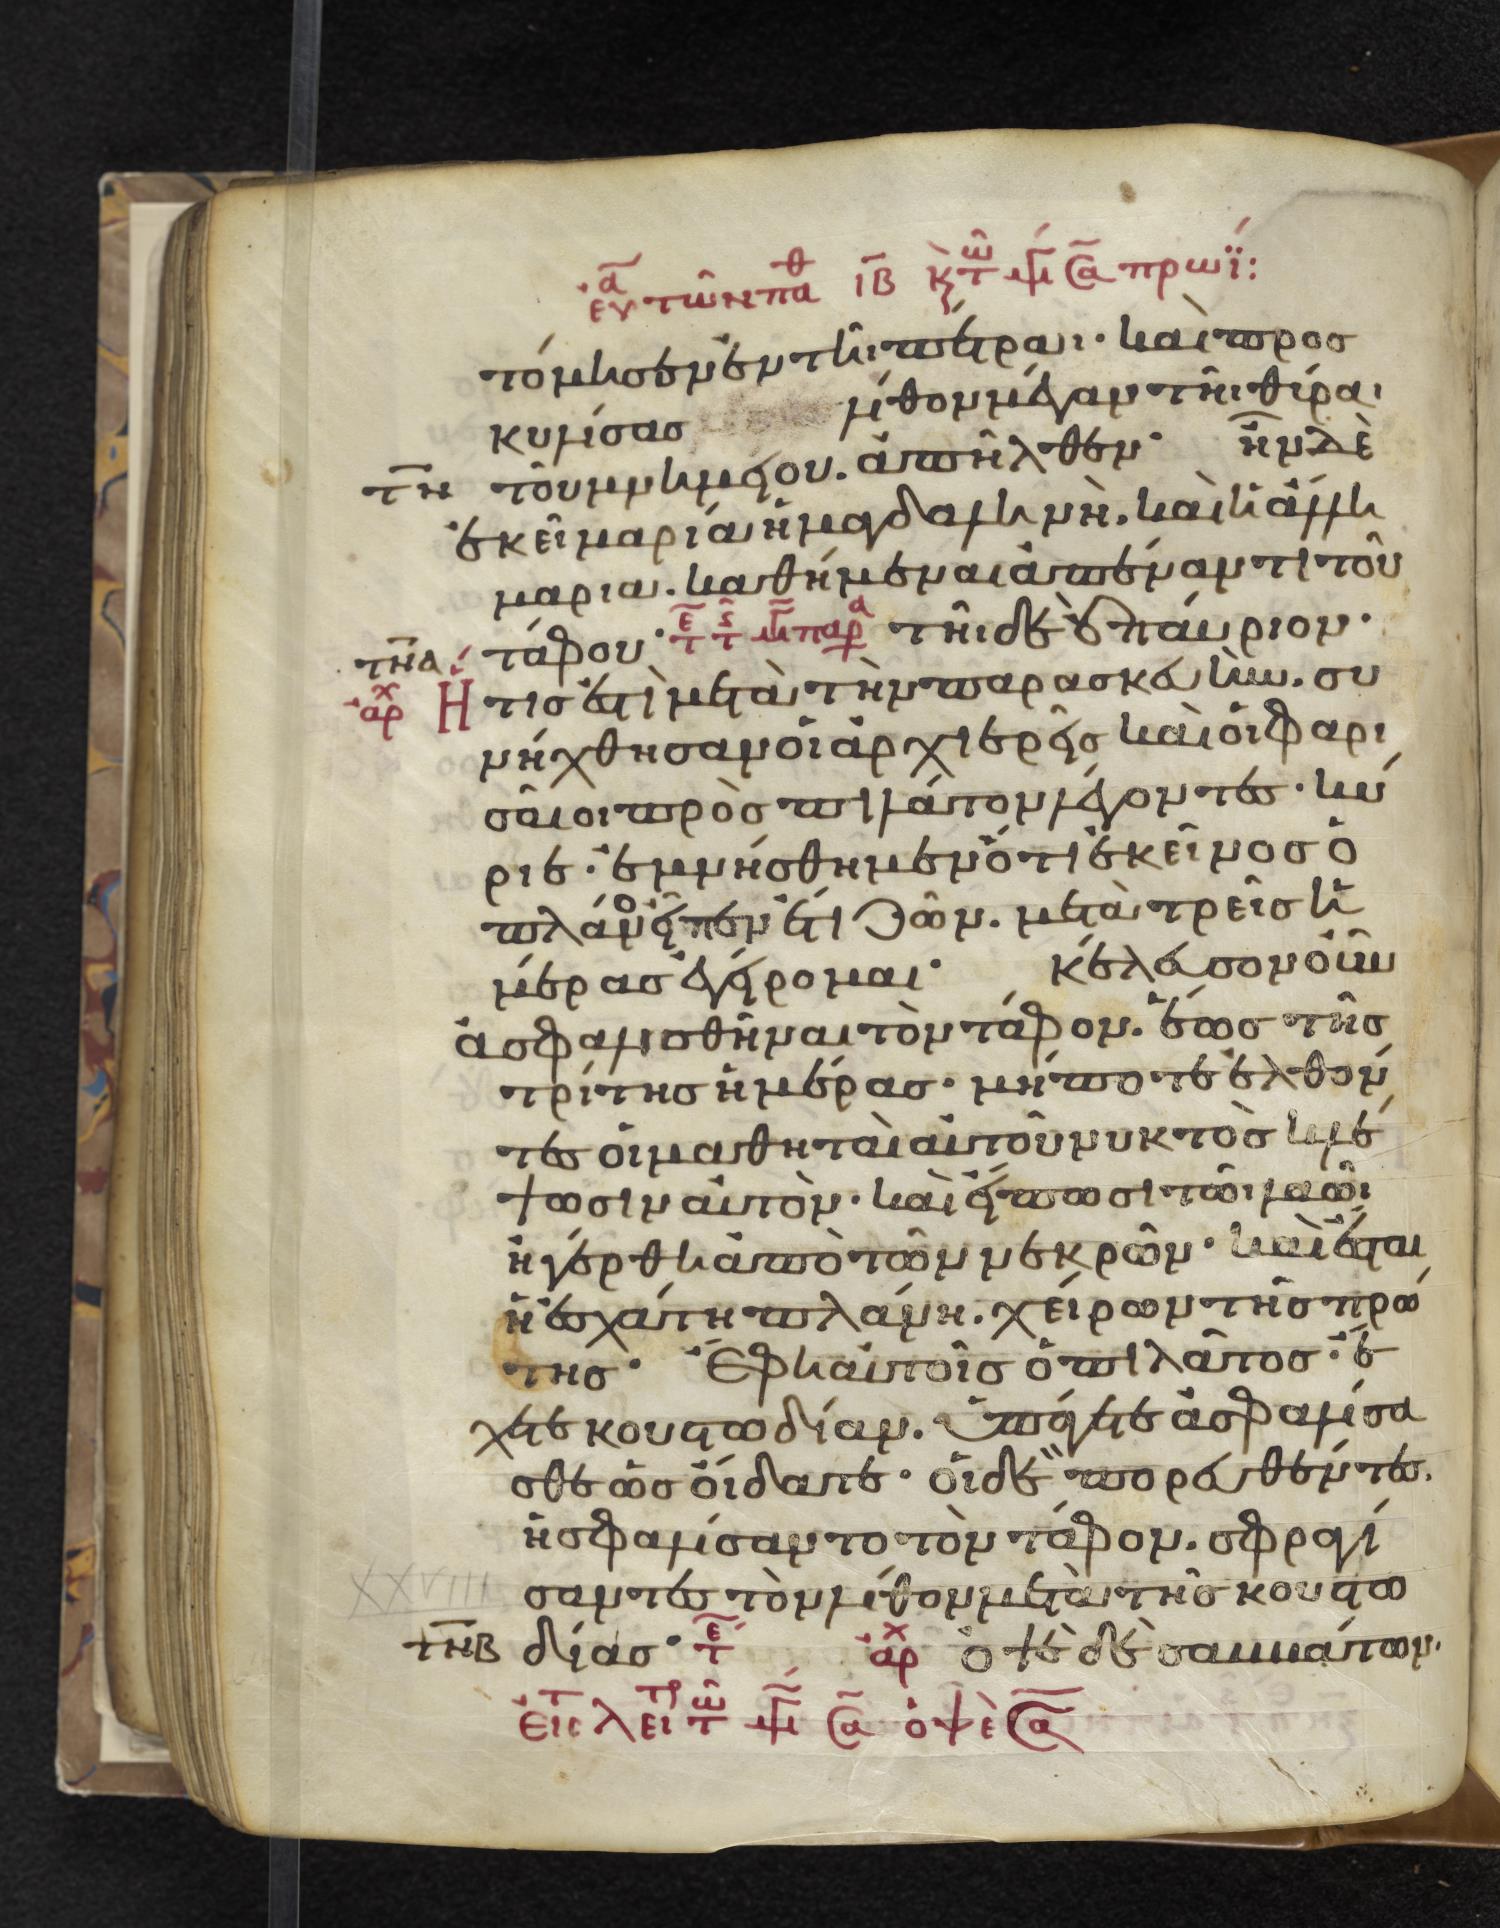 εὐα τῶν παθ ιβ κ τῷ μ σα πρωΐ:
τόμησεν ἐν τῆι πέτραι· καὶ προσ
κυλίσας λίθον μέγαν τῆι θύραι
τη τοῦ μνημείου. ἀπῆλθεν· ἦν δὲ
ἐκεῖ μαρία ἡ μαγδαληνὴ. καὶ ἡ ἄλλη
μαρια. καθήμεναι ἀπέναντι τοῦ
τάφου· τε τϛ μ παρα τῆι δὲ ἐπάυριον·
τηα
αρχ Ἥτις ἐστὶ μετὰ τὴν παρασκευὴν. συ
νήχθησαν οἱ ἀρχιερεῖς καὶ οἱ φαρι
σαῖοι πρὸς πιλάτον λέγοντες· κύ
ριε· ἐμνήσθημεν ὅτι ἐκεῖνος ὁ
πλάνος εἶπεν ἔτι ζῶν. μετὰ τρεῖς ἡ
μέρας ἐγείρομαι· κέλευσον οὖν
ἀσφαλισθῆναι τὸν τάφον. ἕως τῆς
τρίτης ἡμέρας· μήποτε ἐλθόν
τες οἱ μαθηταὶ αὐτοῦ νυκτὸς κλέ
ψωσιν αὐτὸν· καὶ εἴπωσι τῶι λαῶι
ἠγέρθη ἀπὸ τῶν νεκρῶν· καὶ ἔσται
ἡ ἐσχάτη πλάνη. χείρων τῆς πρώ
της· Ἔφη αὐτοῖς ὁ πιλᾶτος· ἔ
χετε κουστωδίαν. ὑπάγετε ἀσφαλίσα
σθε ὡς οἴδατε· οἱ δὲ πορευθέντες.
ἠσφαλίσαντο τὸν τάφον. σφραγί
σαντες τὸν λίθον μετὰ τῆς κουστω
XXVIII
τηβ δίας· τε αρχ ὀψὲ δὲ σαββάτων.
εἰς λειτ τῷ μ σα ὀψὲ σα